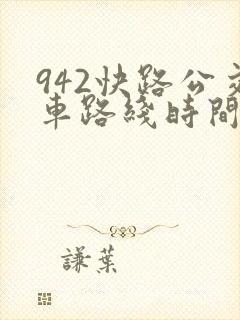 942快路公交
車路綫時間
謙葉